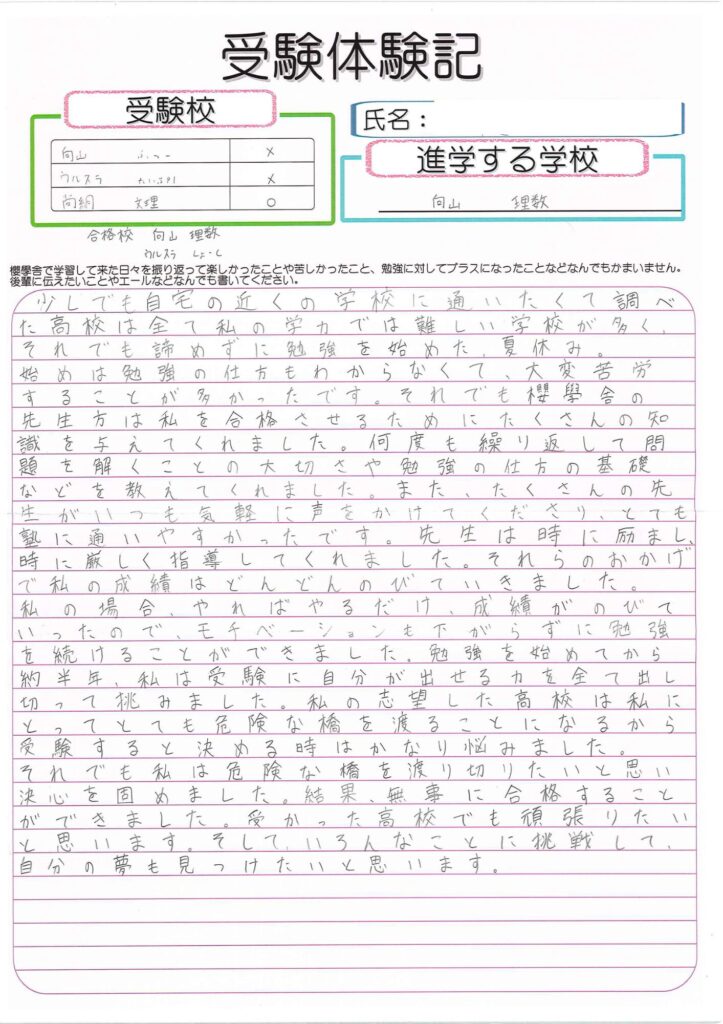 受験体験記
受験校
氏名：
向山 ふつー ×
ウルスラ ×
尚絅 文理 ○
進学する学校
向山 理数
合格校 向山 理数
ウルスラ
櫻學舎で学習して来た日々を振り返って楽しかったことや苦しかったこと、勉強に対してプラスになったことなどなんでもかまいません。
後輩に伝えたいことやエールなどなんでも書いてください。
少しでも自宅の近くの学校に通いたくて調べ
た高校は全て私の学力では難しい学校が多く、
それでも諦めずに勉強を始めた、夏休み。
始めは勉強の仕方もわからなくて、大変苦労
することが多かったです。それでも櫻學舎の
先生方は私を合格させるためにたくさんの知
識を与えてくれました。何度も繰り返して問
題を解くことの大切さや勉強の仕方の基礎
などを教えてくれました。また、たくさんの先
生がいつも気軽に声をかけてくださり、とても
塾に通いやすかったです。先生は時に励まし、
時に厳しく指導してくれました。それらのおかげ
で私の成績はどんどんのびていきました。
私の場合、やればやるだけ、成績がのびて
いったので、モチベーションも下がらずに勉強
を続けることができました。勉強を始めてから
約半年、私は受験に自分が出せる力を全て出し
切って挑みました。私の志望した高校は私に
とってとても危険な橋を渡ることになるから
受験すると決める時はかなり悩みました。
それでも私は危険な橋を渡り切りたいと思い
決心を固めました。結果、無事に合格すること
ができました。受かった高校でも頑張りたい
と思います。そして、いろんなことに挑戦して、
自分の夢も見つけたいと思います。